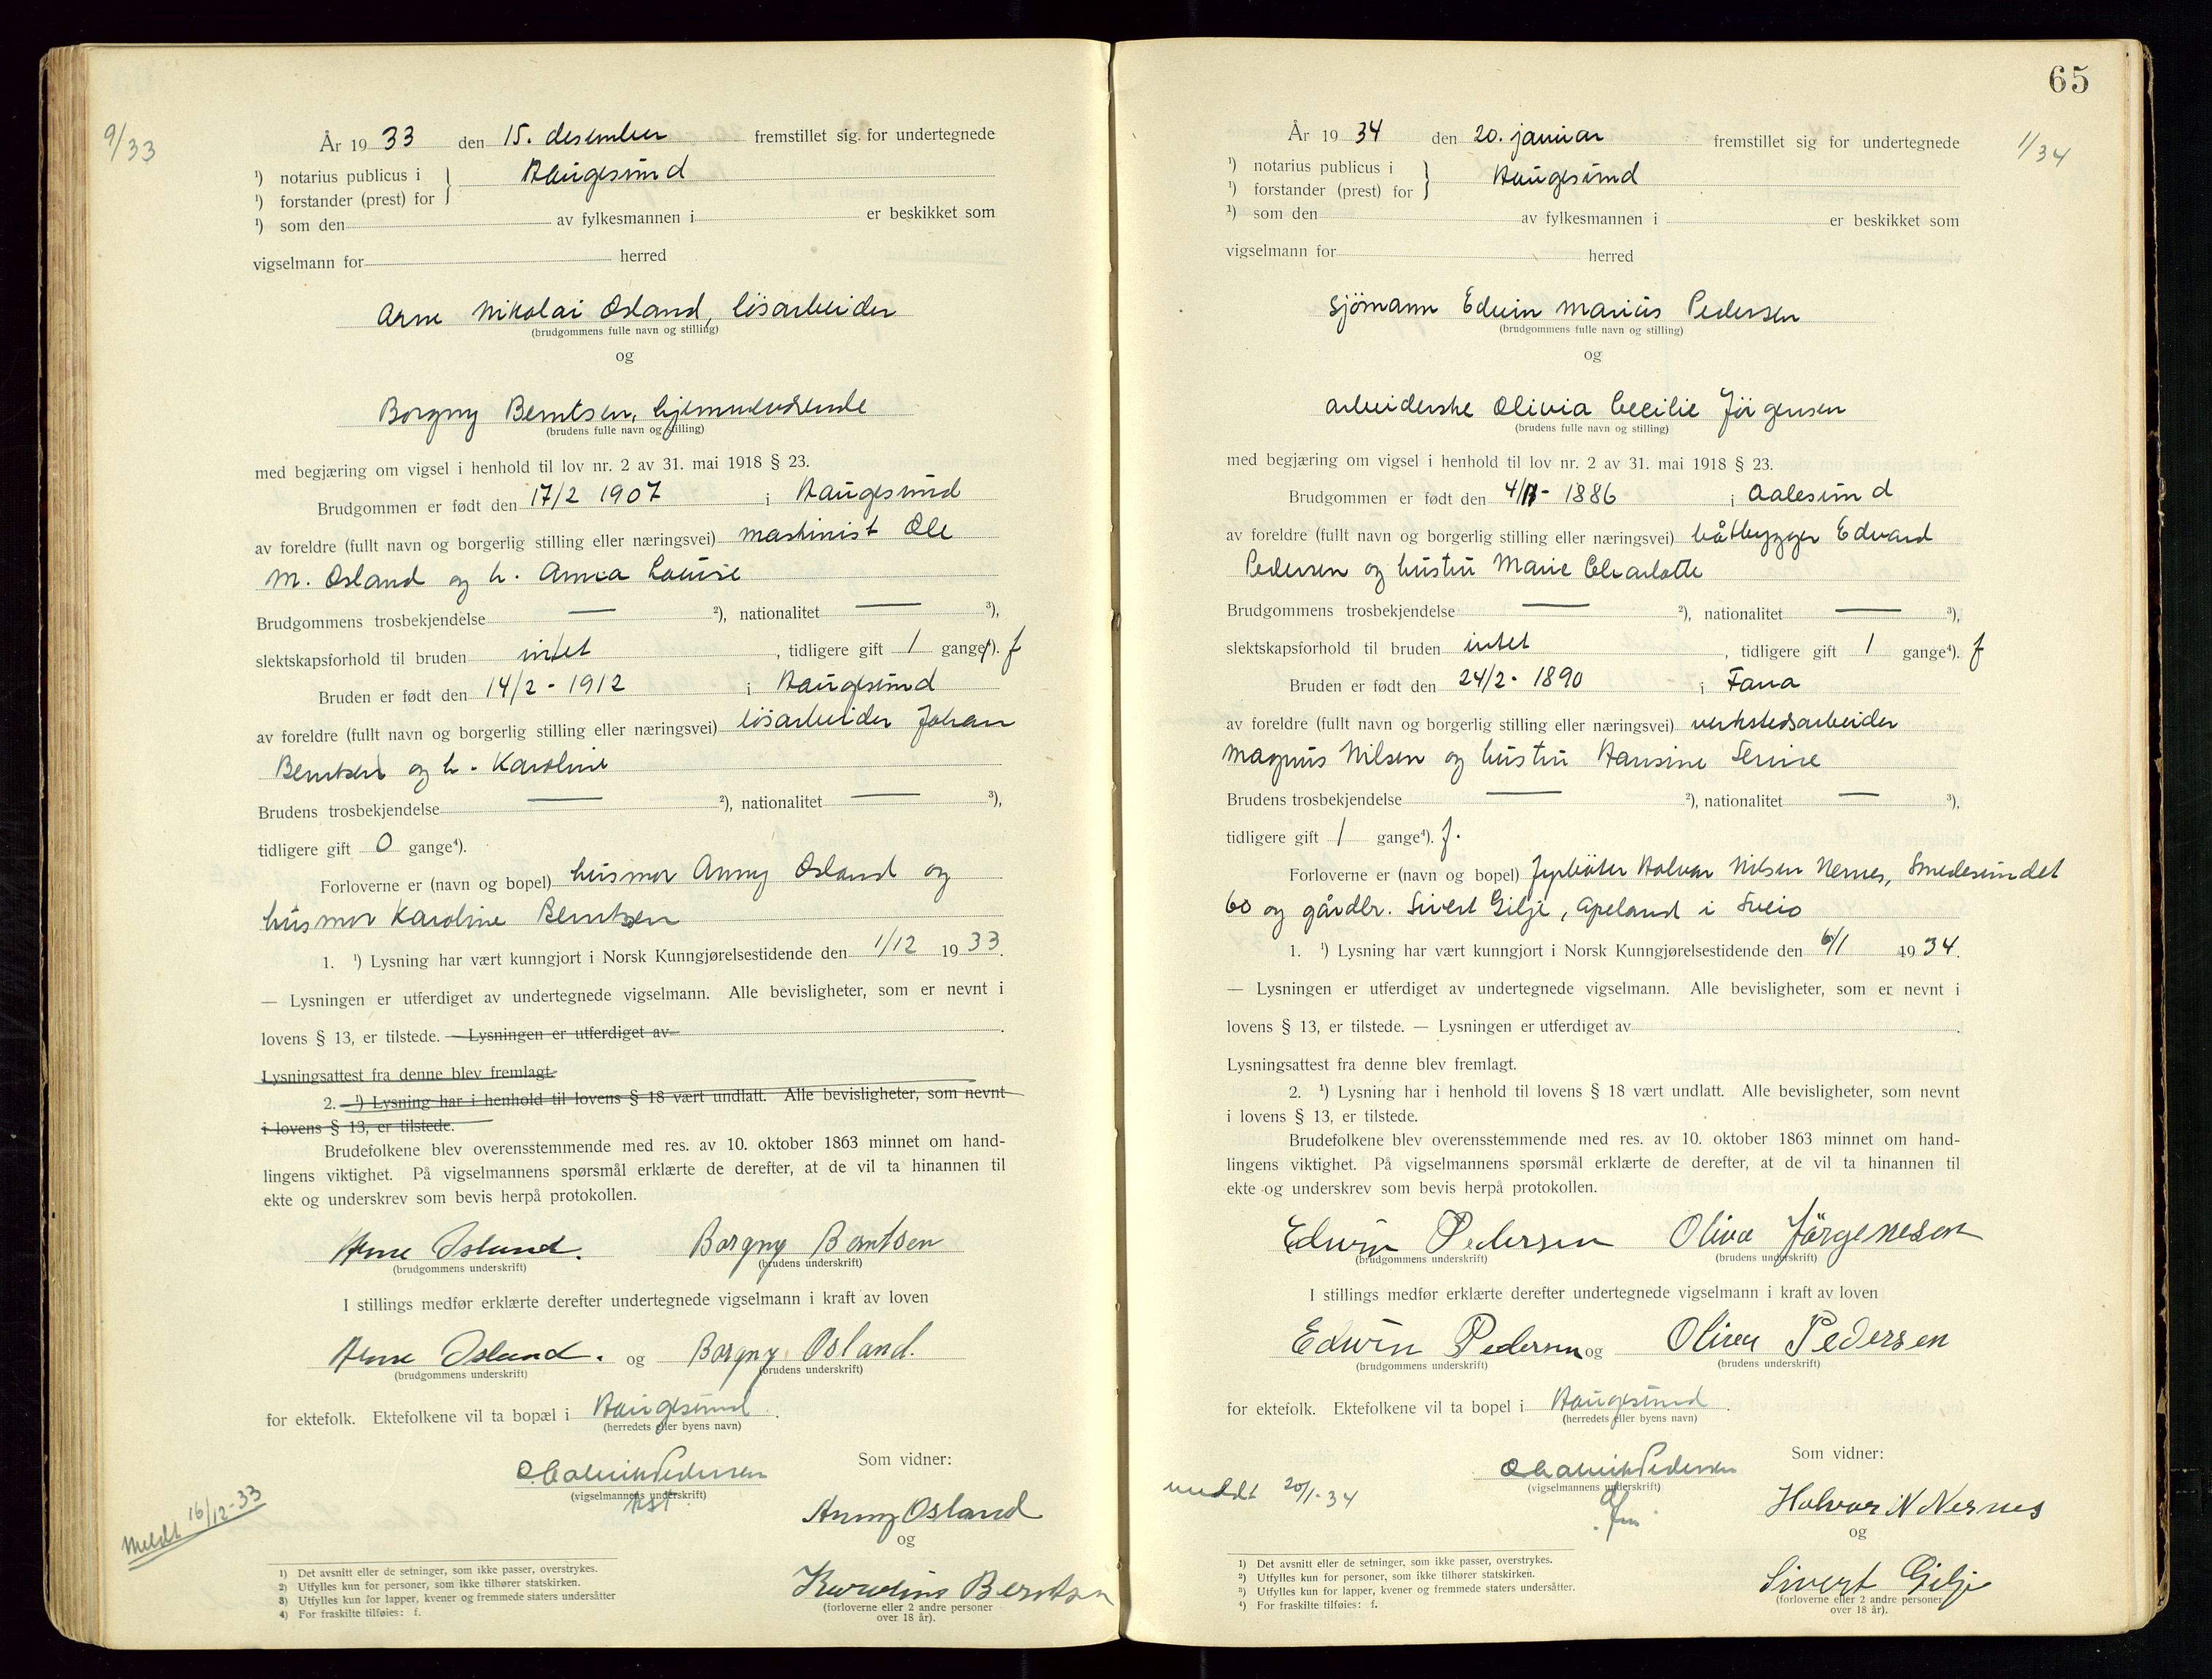 9/33
År 1933 den 15. desember fremstillet sig for undertegnede
¹) notarius publicus i } Haugesund
¹) forstander (prest) for
¹) som den av fylkesmannen i er beskikket som
vigselmann for herred
Arne Nikolai Osland, løsarbeider
(brudgommens fulle navn og stilling)
og
Borgny Berntsen, hjemmeværende
(brudens fulle navn og stilling)
med begjæring om vigsel i henhold til lov nr. 2 av 31. mai 1918 § 23.
Brudgommen er født den 17/2 1907 i Haugesund
av foreldre (fullt navn og borgerlig stilling eller næringsvei) maskinist Ole
M. Osland og h. Anna Louise
Brudgommens trosbekjendelse — ²), nationalitet — ³),
slektskapsforhold til bruden intet, tidligere gift 1 gange⁴). f
Bruden er født den 14/2 - 1912 i Haugesund
av foreldre (fullt navn og borgerlig stilling eller næringsvei) løsarbeider Johan
Berntsen og h. Karoline
Brudens trosbekjendelse — ²), nationalitet — ³),
tidligere gift 0 gange⁴).
Forloverne er (navn og bopel) husmor Anny Osland og
husmor Karoline Berntsen
1. ¹) Lysning har vært kunngjort i Norsk Kunngjørelsestidende den 1/12 1933.
— Lysningen er utferdiget av undertegnede vigselmann. Alle bevisligheter, som er nevnt i
lovens § 13, er tilstede. — Lysningen er utferdiget av
Lysningsattest fra denne blev fremlagt.
2. ¹) Lysning har i henhold til lovens § 18 vært undlatt. Alle bevisligheter, som nevnt
i lovens § 13, er tilstede.
Brudefolkene blev overensstemmende med res. av 10. oktober 1863 minnet om hand-
lingens viktighet. På vigselmannens spørsmål erklærte de derefter, at de vil ta hinannen til
ekte og underskrev som bevis herpå protokollen.
Arne Osland. Borgny Berntsen
(brudgommens underskrift) (brudens underskrift)
I stillings medfør erklærte derefter undertegnede vigselmann i kraft av loven
Arne Osland. og Borgny Osland.
(brudgommens underskrift) (brudens underskrift)
for ektefolk. Ektefolkene vil ta bopæl i Haugesund.
(herredets eller byens navn)
Som vidner:
Pedersen
(vigselmannens underskrift)
Anny Osland
og
Meldt 16/12-33
Karoline Berntsen
(forloverne eller 2 andre personer
over 18 år).
1) Det avsnitt eller de setninger, som ikke passer, overstrykes.
2) Utfylles kun for personer, som ikke tilhører statskirken.
3) Utfylles kun for lapper, kvener og fremmede staters undersåtter
4) For fraskilte tilføies: f.
65
1/34
År 1934 den 20. januar fremstillet sig for undertegnede
¹) notarius publicus i } Haugesund
¹) forstander (prest) for
¹) som den av fylkesmannen i er beskikket som
vigselmann for herred
Sjömann Edvin Marius Pedersen
(brudgommens fulle navn og stilling)
og
arbeiderske Olivia Cecilie Jörgensen
(brudens fulle navn og stilling)
med begjæring om vigsel i henhold til lov nr. 2 av 31. mai 1918 § 23.
Brudgommen er født den 4/11- 1886 i Aalesund
av foreldre (fullt navn og borgerlig stilling eller næringsvei) båtbygger Edvard
Pedersen og hustru Marie Charlotte
Brudgommens trosbekjendelse — ²), nationalitet — ³),
slektskapsforhold til bruden intet, tidligere gift 1 gange⁴). f
Bruden er født den 24/2 - 1890 i Fana
av foreldre (fullt navn og borgerlig stilling eller næringsvei) verkstedsarbeider
Magnus Nilsen og hustru Hansine Serine
Brudens trosbekjendelse — ²), nationalitet — ³),
tidligere gift 1 gange⁴). f.
Forloverne er (navn og bopel) Halvor Nilsen Nernes, Smedesundet
60 og gårdbr. Sivert Gilje, Apeland i Sveio
1. ¹) Lysning har vært kunngjort i Norsk Kunngjørelsestidende den 6/1 1934.
— Lysningen er utferdiget av undertegnede vigselmann. Alle bevisligheter, som er nevnt i
lovens § 13, er tilstede. — Lysningen er utferdiget av
Lysningsattest fra denne blev fremlagt.
2. ¹) Lysning har i henhold til lovens § 18 vært undlatt. Alle bevisligheter, som nevnt
i lovens § 13, er tilstede.
Brudefolkene blev overensstemmende med res. av 10. oktober 1863 minnet om hand-
lingens viktighet. På vigselmannens spørsmål erklærte de derefter, at de vil ta hinannen til
ekte og underskrev som bevis herpå protokollen.
Edwin Pedersen Oliva Jörgenesen
(brudgommens underskrift) (brudens underskrift)
I stillings medfør erklærte derefter undertegnede vigselmann i kraft av loven
Edwin Pedersen og Oliva Pedersen
(brudgommens underskrift) (brudens underskrift)
for ektefolk. Ektefolkene vil ta bopel i Haugesund.
(herredets eller byens navn)
Som vidner:
Pedersen
(vigselmannens underskrift)
meldt 20/1-34
Halvor N Nernes
og
Sivert Gilje
(forloverne eller 2 andre personer
over 18 år).
¹) Det avsnitt eller de setninger, som ikke passer, overstrykes.
²) Utfylles kun for personer, som ikke tilhører statskirken.
³) Utfylles kun for lapper, kvener og fremmede staters undersåtter.
⁴) For fraskilte tilføies: f.